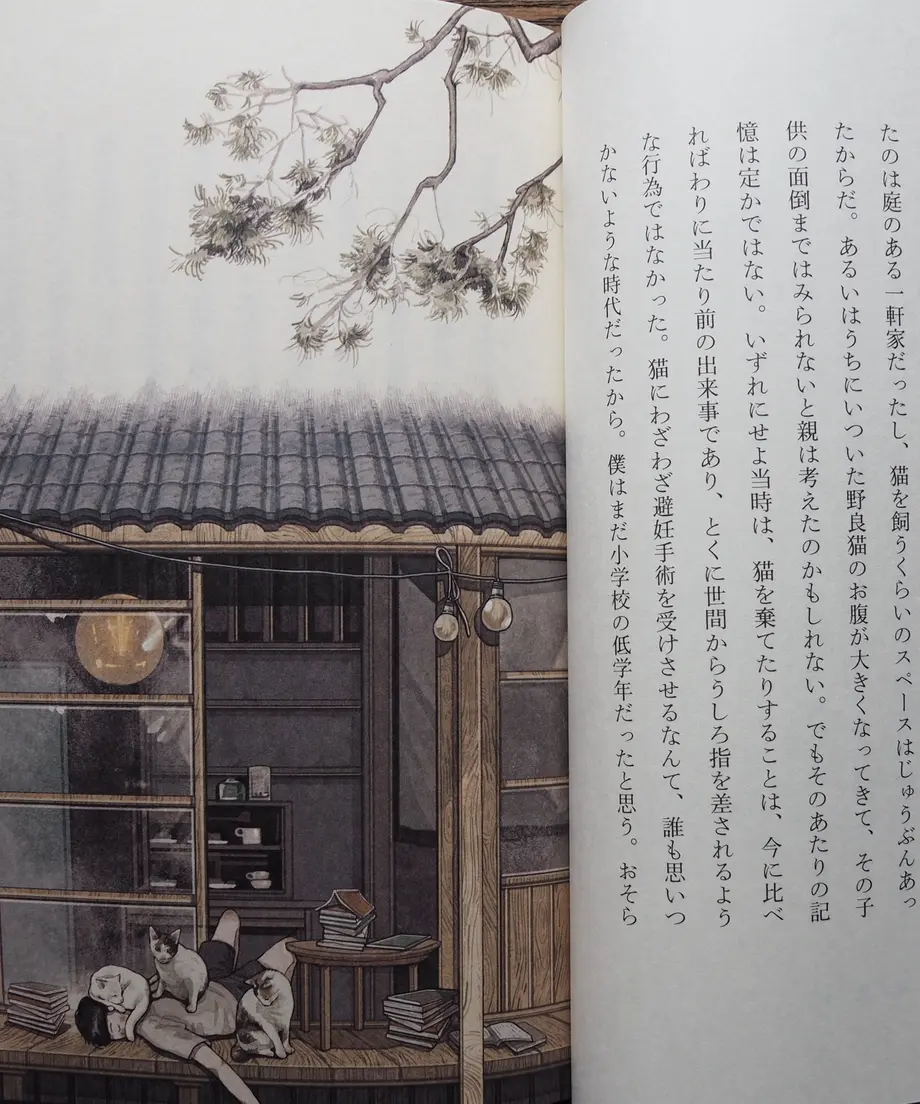 たのは庭のある一軒家だったし、猫を飼うくらいのスペースはじゅうぶんあっ
たからだ。あるいはうちにいついた野良猫のお腹が大きくなってきて、その子
供の面倒まではみられないと親は考えたのかもしれない。でもそのあたりの記
憶は定かではない。いずれにせよ当時は、猫を棄てたりすることは、今に比べ
ればわりに当たり前の出来事であり、とくに世間からうしろ指を差されるよう
な行為ではなかった。猫にわざわざ避妊手術を受けさせるなんて、誰も思いつ
かないような時代だったから。僕はまだ小学校の低学年だったと思う。おそら